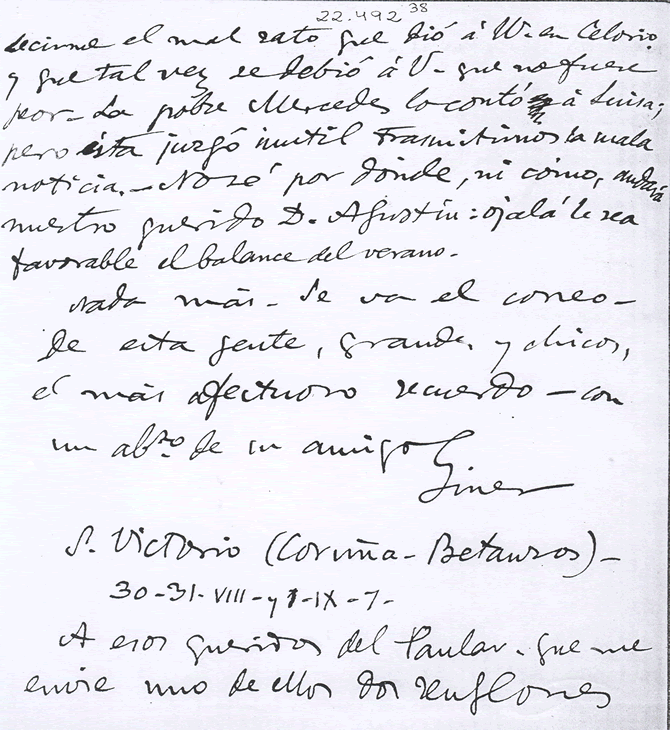 22.492 38
decirme el mal rato que dió á W. en Celorio.
y que tal vez se debió á V. que no fuese
peor. La pobre Mercedes lo contó á Luisa;
pero ésta juzgó inutil trasmitirnos la mala
noticia. — No sé por dónde, ni cómo, andará
nuestro querido D. Agustin: ojalá le sea
favorable el balance del verano.
Nada más. Se va el correo.
De esta gente, grandes y chicos,
el más afectuoso recuerdo — con
un abzo. de su amigo
Giner
S. Victorio (Coruña - Betanzos) -
30-31-VIII- y 1-IX-7-
A esos queridos del Paular. que me
envie uno de ellos dos renglones